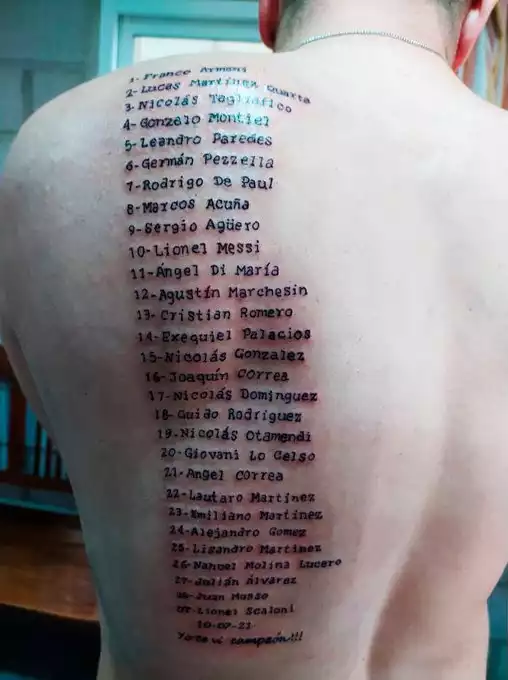 1-Franco Armani
2-Lucas Martínez Quarta
3-Nicolás Tagliafico
4-Gonzalo Montiel
5-Leandro Paredes
6-Germán Pezzella
7-Rodrigo De Paul
8-Marcos Acuña
9-Sergio Agüero
10-Lionel Messi
11-Ángel Di María
12-Agustín Marchesin
13-Cristian Romero
14-Exequiel Palacios
15-Nicolás Gonzalez
16-Joaquín Correa
17-Nicolás Dominguez
18-Guido Rodríguez
19-Nicolás Otamendi
20-Giovani Lo Celso
21-Angel Correa
22-Lautaro Martínez
23-Emiliano Martínez
24-Alejandro Gomez
25-Lisandro Martínez
26-Nahuel Molina Lucero
27-Julián Álvarez
28-Juan Musso
DT-Lionel Scaloni
10-07-21
Yo te vi campeón!!!